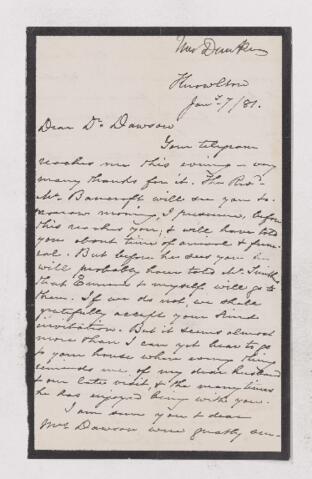 Mrs Dunkin
Knowlton
Jany. 7/81.
Dear Dr. Dawson
Your telegram
reaches me this evening - very
many thanks for it. The Revd.
Mr. Bancroft will see you to-
morrow morning, I presume, before
this reaches you, & will have told
you about time of arrival & fun-
eral. But before he sees you he
will probably have told Mr.
that Emma & myself will go to
them. If we do not, we shall
gratefully accept your kind
invitation. But it seems almost
more than I can yet bear to go
to your house where every thing
reminds me of my dear husband
& our late visit, & the many times
he has enjoyed being with you.
I am sure you & dear
Mrs Dawson were greatly